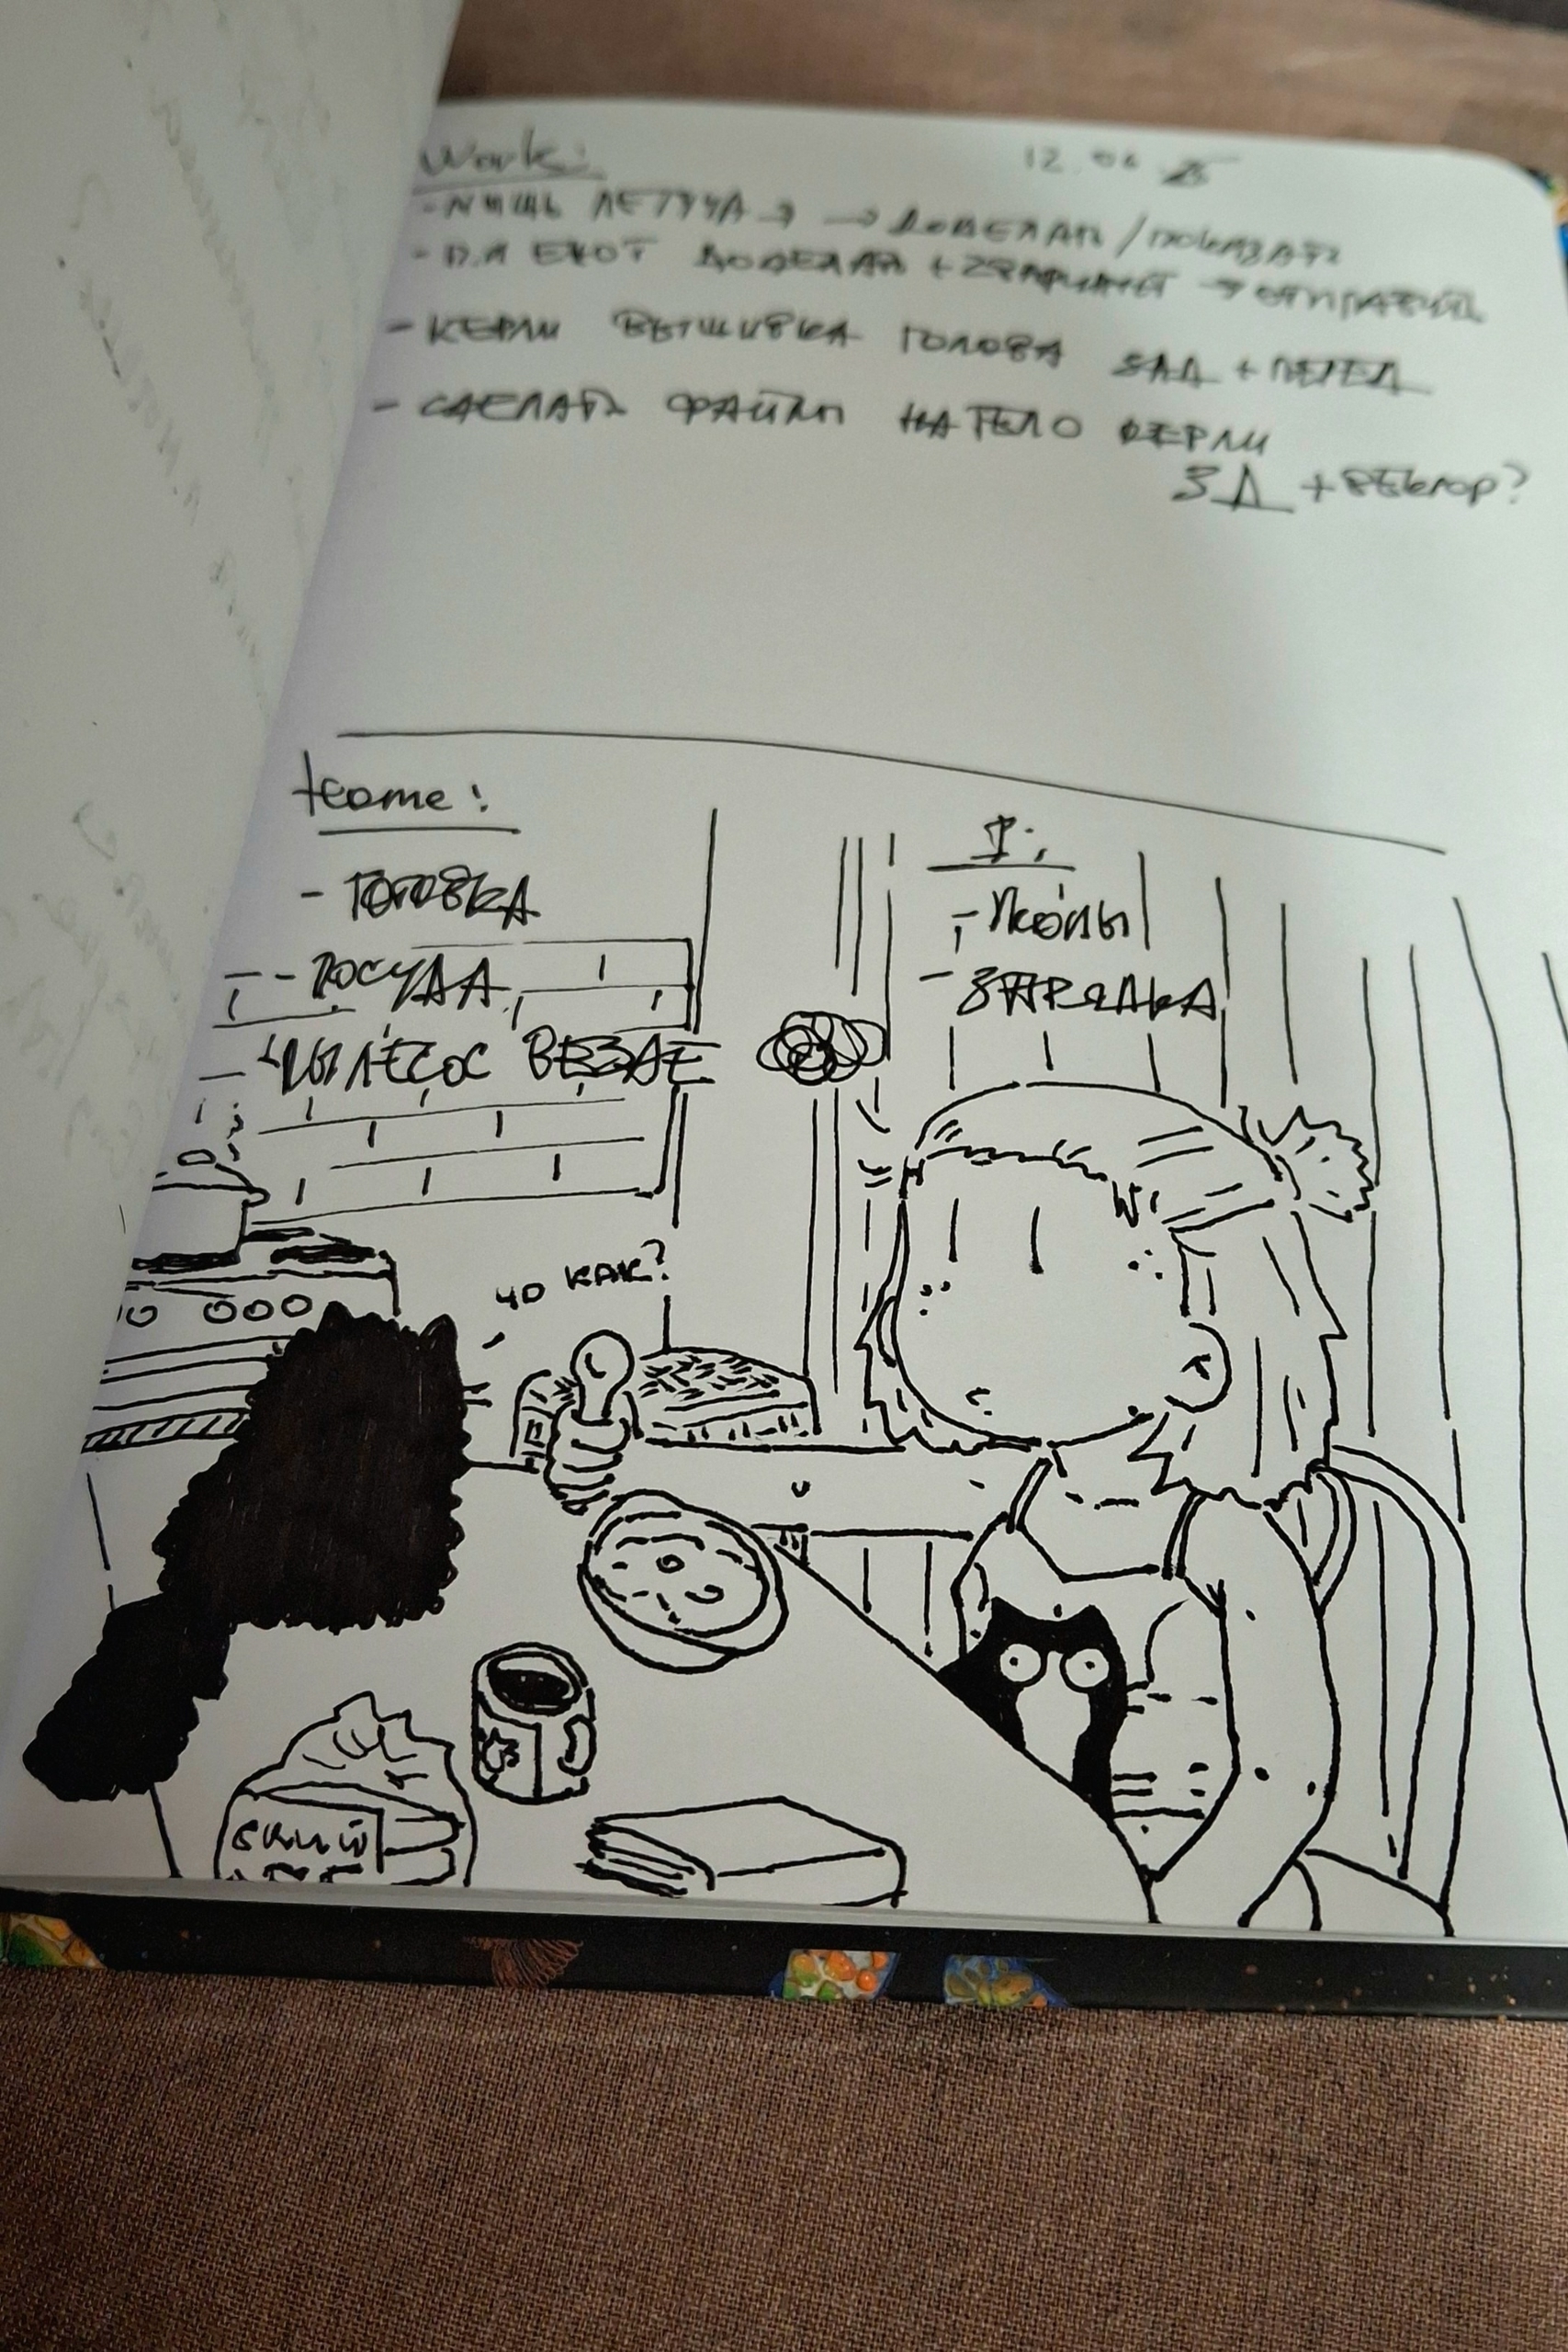 Work:
12.06
- МЫШЬ ЛЕТУЧАЯ → ДОДЕЛАТЬ / ПОКАЗАТЬ
- ЕНОТ ДОДЕЛАТЬ + 2 ВАРИАНТ → ОТПРАВИТЬ
- КЕРЛИ ВЫШИВКА ГОЛОВА ЗАД + ПЕРЕД
- СДЕЛАТЬ ФАЙЛЫ НА ТЕЛО КЕРЛИ
3Д + ВЕКТОР?
Home:
- ГОТОВКА
- ПОСУДА
- ПЫЛЕСОС ВЕЗДЕ
I:
- ЗАРЯДКА
ЧО КАК?